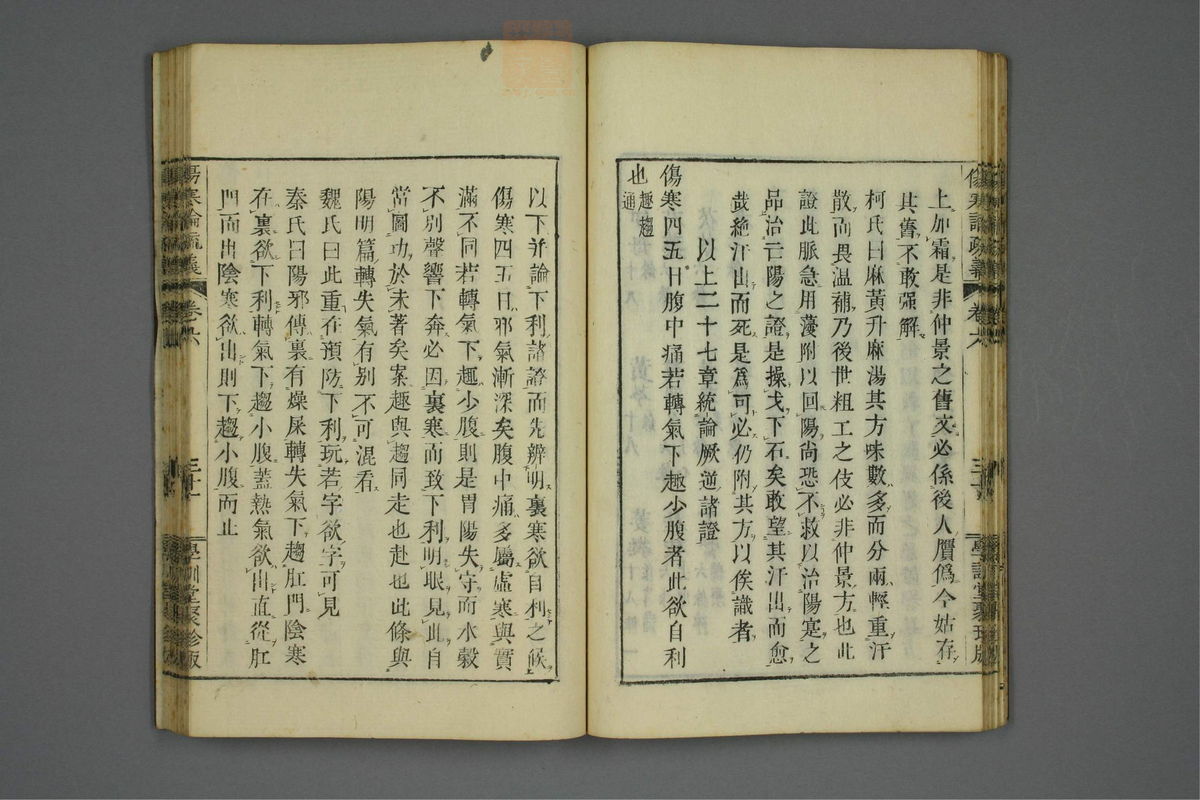 上加霜是非仲景之舊文必係後人贋僞今姑存
其舊不敢强解
柯氏曰麻黃升麻湯其方味數多而分兩輕重汗
散而畏温補乃後世粗工之伎必非仲景方也此
證此脈急用蓡附以回陽尚恐不救以治陽寔之
品治亡陽之證是操戈下石矣敢望其汗出而愈
哉絶汗出而死是爲可必仍附其方以俟識者
以上二十七章統論厥逆諸證
傷寒四五日腹中痛若轉氣下趣少腹者此欲自利
也趣趨通
傷寒論疏義
卷六
三十
學訓堂聚珍版
以下并論下利諸證而先辨明裏寒欲自利之候
傷寒四五日邪氣漸深矣腹中痛多屬虛寒與實
滿不同若轉氣下趣少腹則是胃陽失守而水穀
不別聲響下奔必因裏寒而致下利明眼見此自
當圖功於未著矣案趣與趨同走也赴也此條與
陽明篇轉失氣有別不可混看
魏氏曰此重在預防下利玩若字欲字可見
秦氏曰陽邪傳裏有燥屎轉失氣下趨肛門陰寒
在裏欲下利轉氣下趨小腹蓋熱氣欲出直從肛
門而出陰寒欲出則下趨小腹而止
傷寒論疏義
卷六
三十一
學訓堂聚珍版